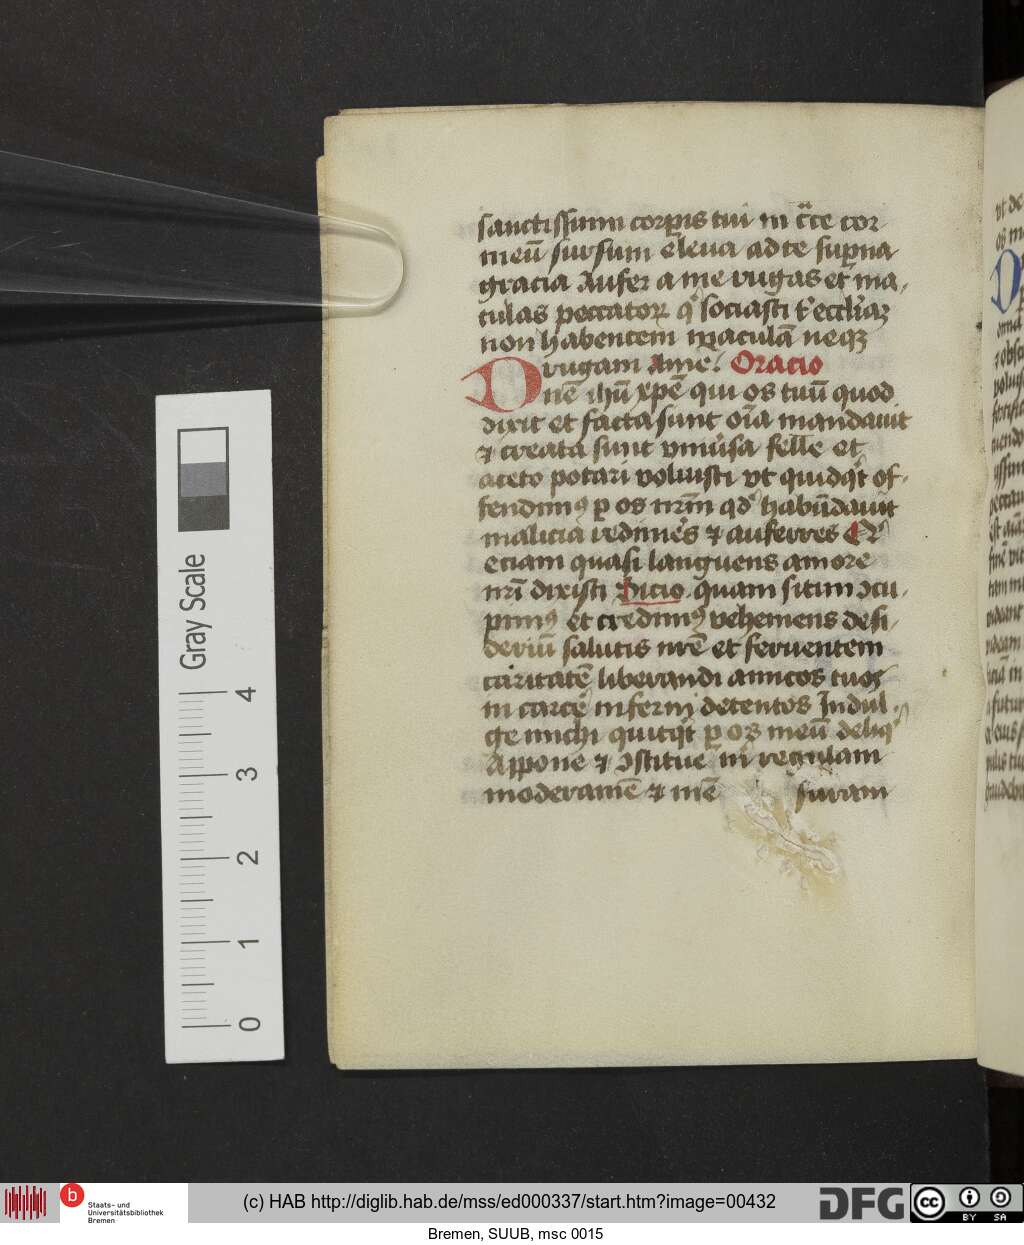 sanctissimi corpis tui in c̄ce cor
meū sursum eleua ad te supna
gracia Aufer a me rugas et ma,
culas peccatoꝝ qͥ sociasti t' eccliaꝫ
non habentem maculā neqꝫ
rugam Ame. Oracio
Dnē ihū xp̄e qui os tuū quod
dixit et facta sunt oīa mandauit
⁊ creata sunt vniūsa felle et
aceto potari voluisti vt quidqͥt of-
fendimꝰ p os nrm̄ qd' habūdauit
malicia redimēs ⁊ auferres Et
eciam quasi languens amore
nrī dixisti Sicio quam sitim ꝯcu-
pimꝰ et credimꝰ vehemens desi-
deriū salutis nrē et feruentem
caritatē liberandi amicos tuos
in carcē inferni detentos Indul-
ge michi quitqͥt p os meū deliqͥ
Appone ⁊ ꝯstitue in regulam
moderamē ⁊ mē suram
vt de
os m
Gray Scale
4
3
2
1
0
b
Staats- und
Universitätsbibliothek
Bremen
(c) HAB http://diglib.hab.de/mss/ed000337/start.htm?image=00432
DFG
cc BY SA
Bremen, SUUB, msc 0015